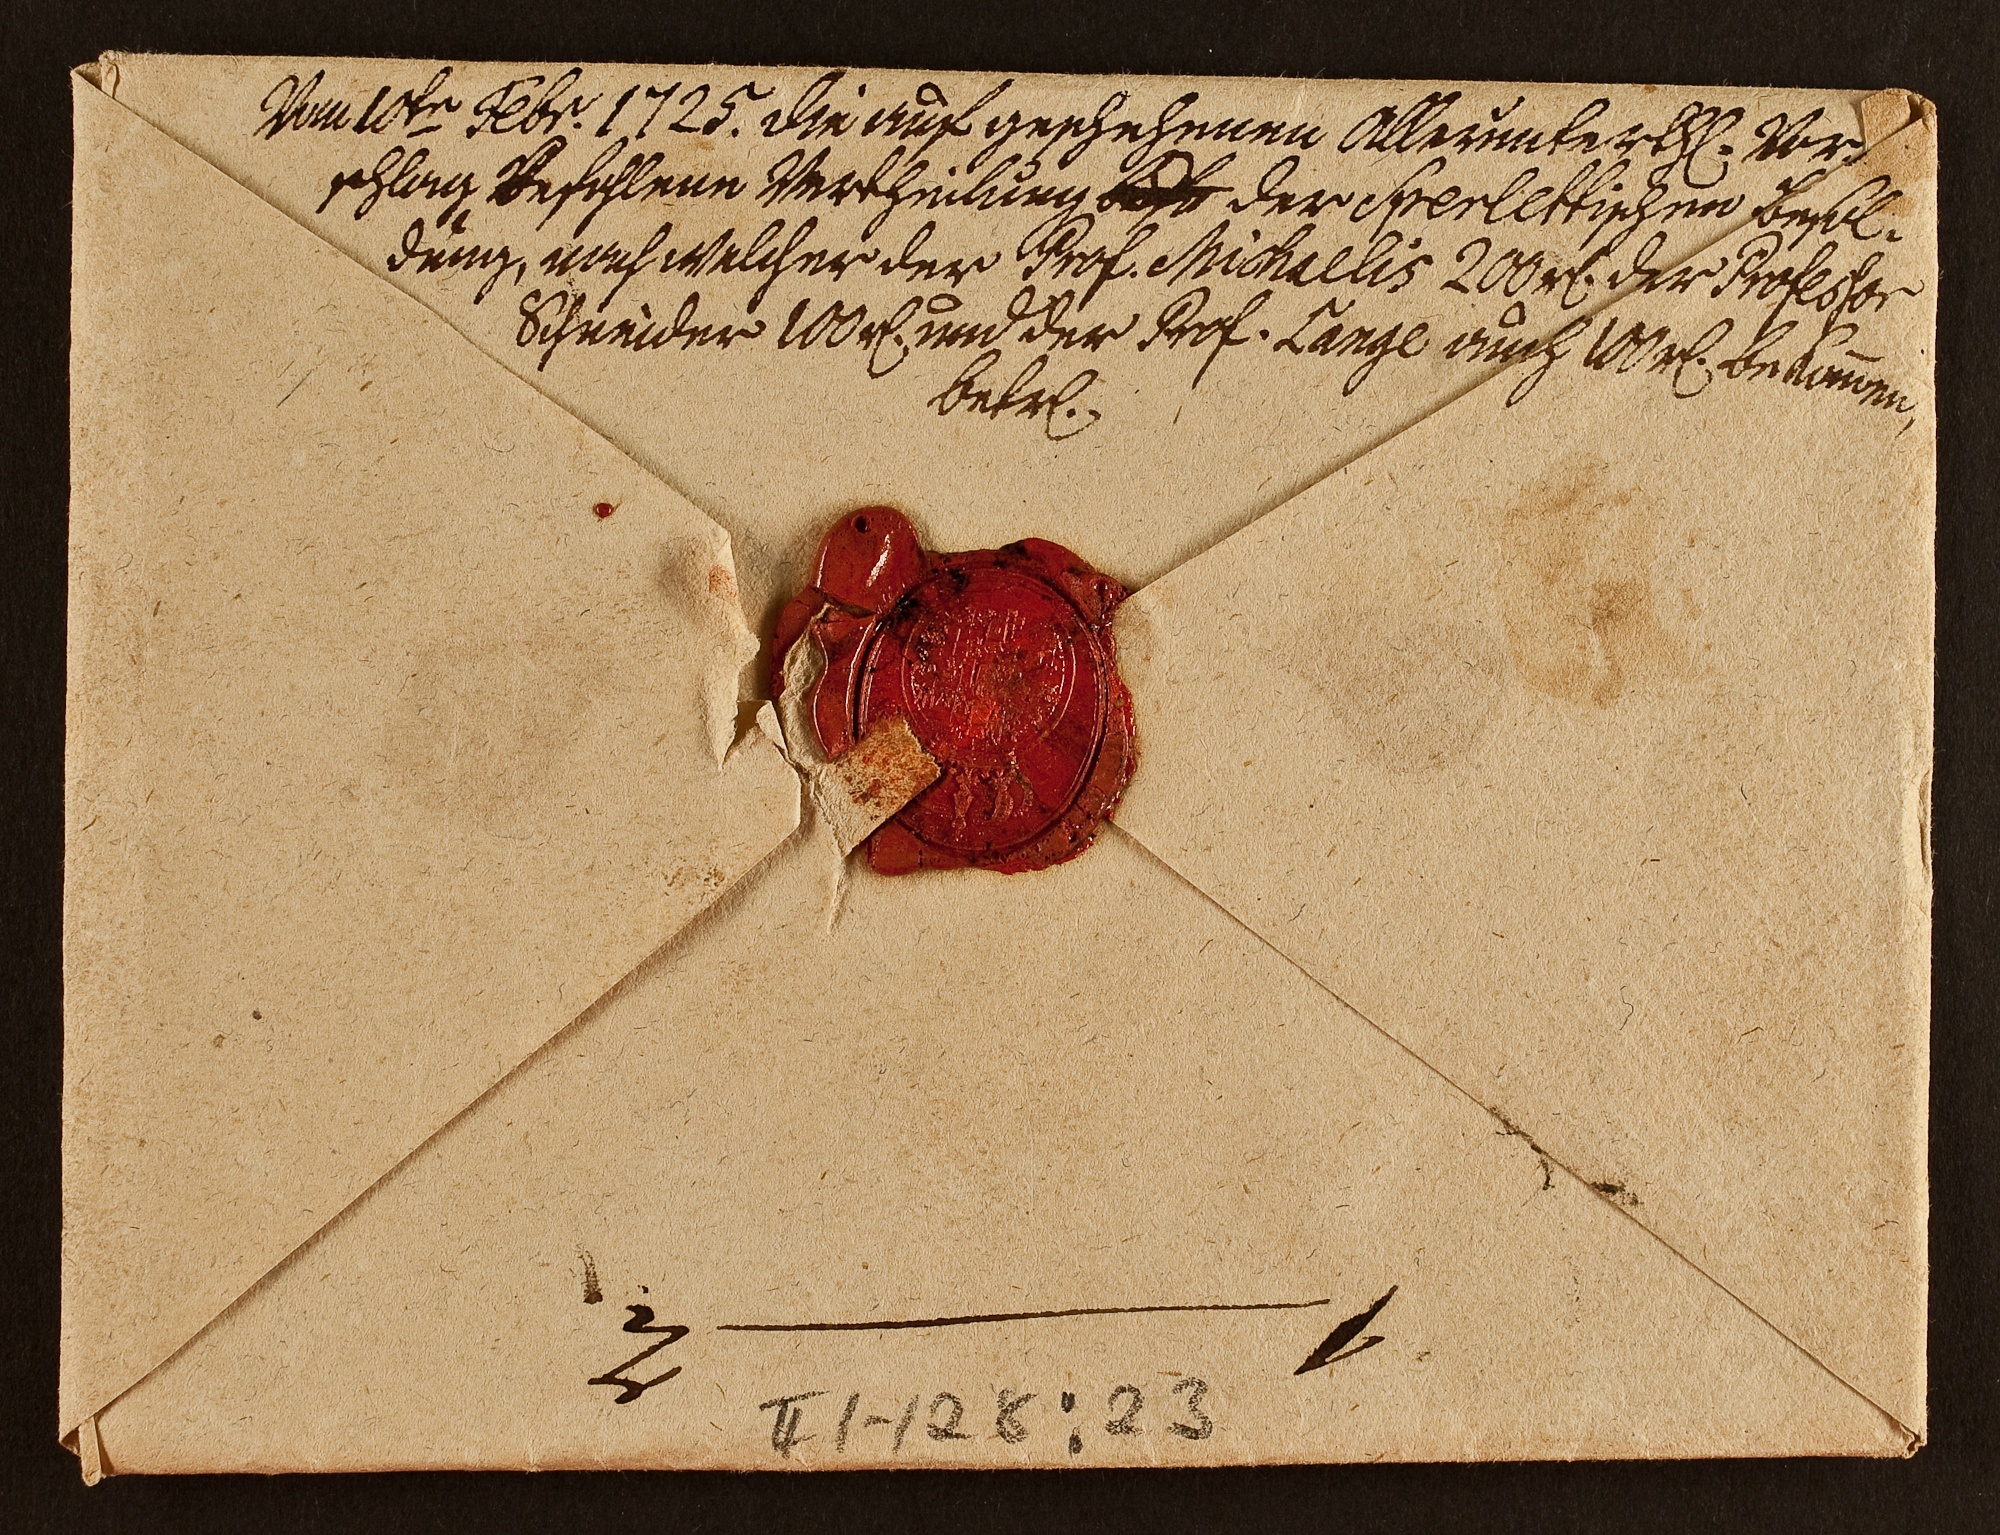 Vom 10ten Febr. 1725. die auf geschehenen Allerunterth. Vor-
schlag Befohlene Vertheilung der Sperlettischen Besol-
dung, nach welcher der Prof. Michaelis 200 rl. der Professor
Schneider 100 rl. und der Prof. Lange auch 100 rl. bekom̄en,
betrl.
II 1-128:23